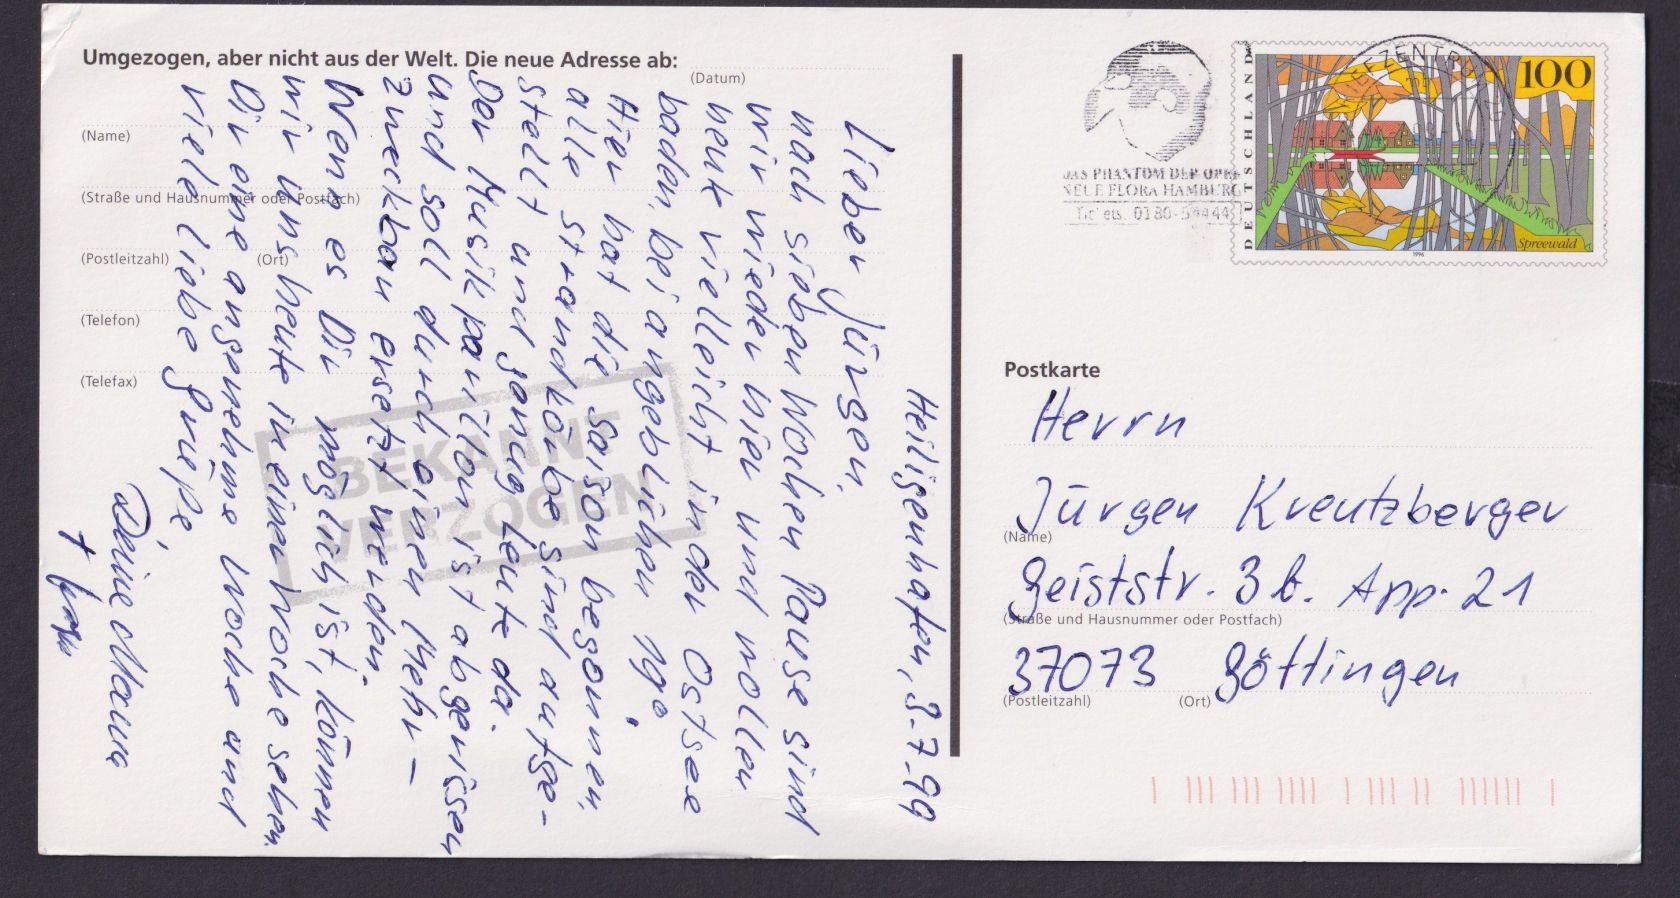 Umgezogen, aber nicht aus der Welt. Die neue Adresse ab:
(Datum)
(Name)
(Straße und Hausnummer oder Postfach)
(Postleitzahl) (Ort)
(Telefon)
(Telefax)
BEKANNT
VERZOGEN
Heiligenhafen, 3.7.99
Lieber Jürgen,
nach sieben Wochen Pause sind
wir wieder hier und wollen
heute vielleicht in der Ostsee
baden, bei angeblichen 19°.
Hier hat die Saison begonnen,
alle Strandkörbe sind aufge-
stellt und genug Leute da.
Der Musikpavillon ist abgerissen
und soll durch einen Mehr-
zweckbau ersetzt werden.
Wenn es Dir möglich ist, können
wir uns heute in einer Woche sehen.
Dir eine angenehme Woche und
viele liebe Grüße,
Deine Mama
+
DAS PHANTOM DER OPER
NEUE FLORA HAMBURG
Tickets 0180-54444
DEUTSCHLAND
100
Spreewald
1996
BRIEFZENTRUM
Postkarte
Herrn
Jürgen Kreutzberger
(Name)
Geiststr. 3 b. App. 21
(Straße und Hausnummer oder Postfach)
37073 Göttingen
(Postleitzahl) (Ort)